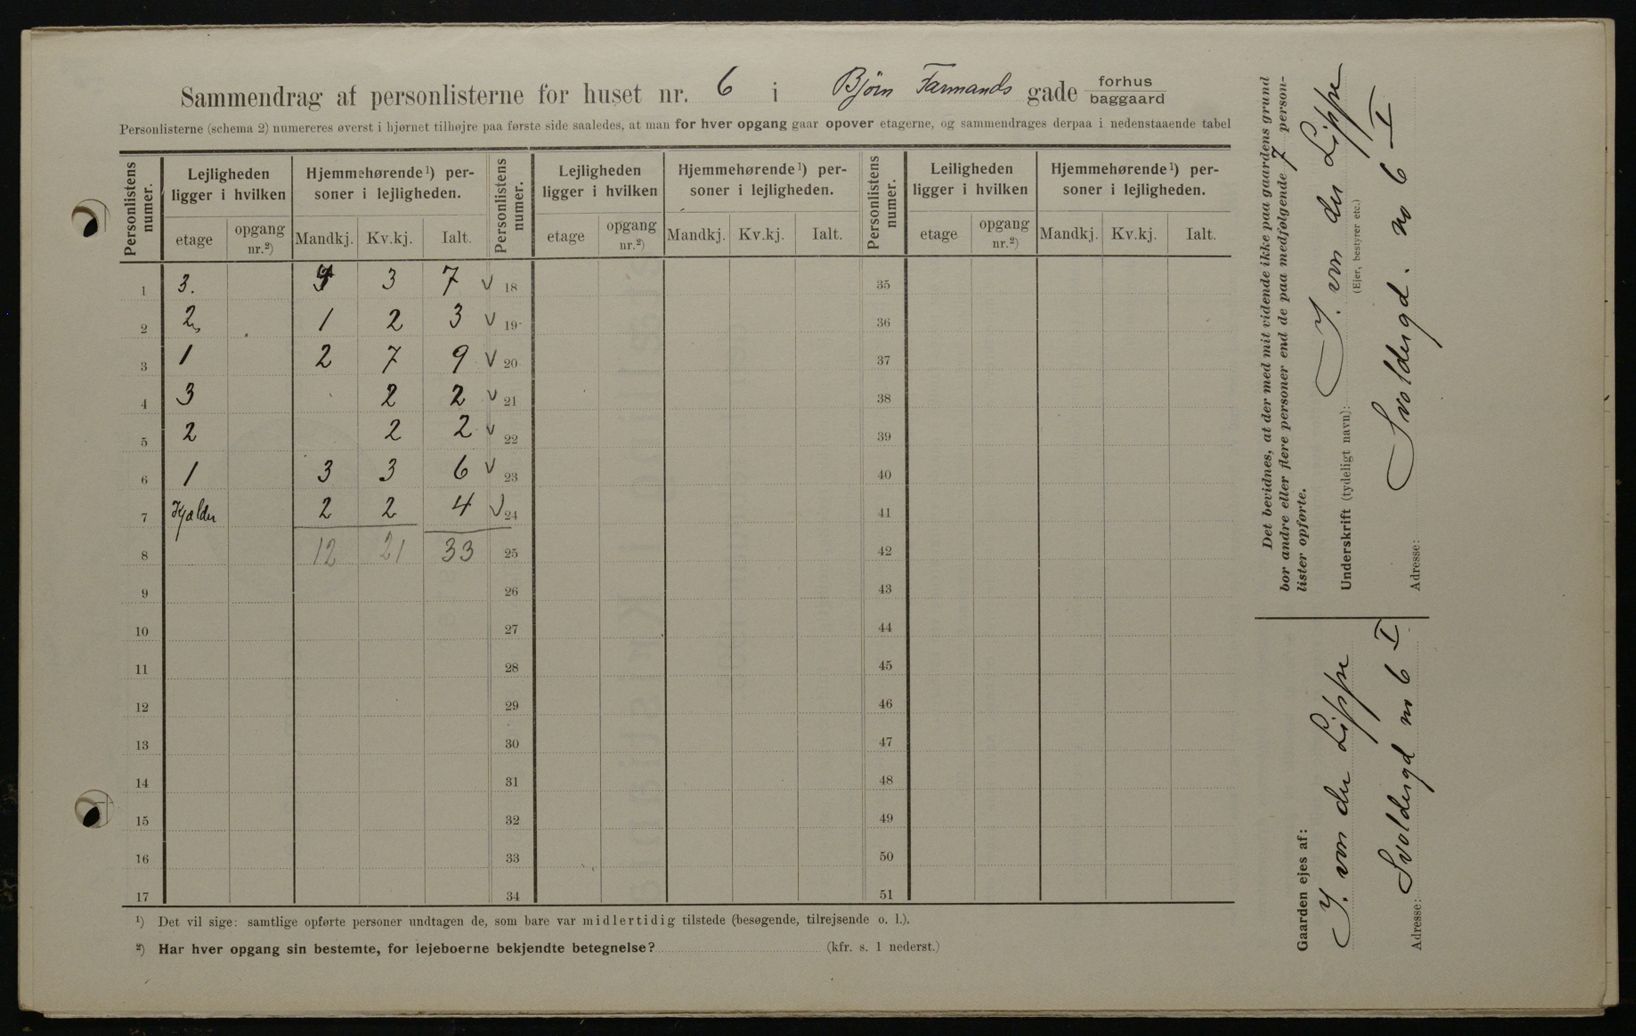 Sammendrag af personlisterne for huset nr. 6 i Bjørn Farmands gade forhus
baggaard
Personlisterne (schema 2) numereres øverst i hjørnet tilhøjre paa første side saaledes, at man for hver opgang gaar opover etagerne, og sammendrages derpaa i nedenstaaende tabel
Personlistens numer. Lejligheden ligger i hvilken Hjemmehørende ¹) personer i lejligheden. Personlistens numer. Lejligheden ligger i hvilken Hjemmehørende ¹) personer i lejligheden. Personlistens numer. Leiligheden ligger i hvilken Hjemmehørende ¹) personer i lejligheden.
etage opgang nr.²) Mandkj. Kv.kj. Ialt. etage opgang nr.²) Mandkj. Kv.kj. Ialt. etage opgang nr.²) Mandkj. Kv.kj. Ialt.
1 3. 3 7 v 18 35
2 2 1 2 3 v 19 36
3 1 2 7 9 v 20 37
4 3 2 2 v 21 38
5 2 2 2 v 22 39
6 1 3 3 6 v 23 40
7 Kjælder 2 2 4 v 24 41
8 12 21 33 25 42
9 26 43
10 27 44
11 28 45
12 29 46
13 30 47
14 31 48
15 32 49
16 33 50
17 34 51
¹) Det vil sige: samtlige opførte personer undtagen de, som bare var midlertidig tilstede (besøgende, tilrejsende o. l.).
²) Har hver opgang sin bestemte, for lejeboerne bekjendte betegnelse? (kfr. s. 1 nederst.)
Det bevidnes, at der med mit vidende ikke paa gaardens grund
bor andre eller flere personer end de paa medfølgende 7 person-
lister opførte.
Underskrift (tydeligt navn): J. von der Lippe
(Eier, bestyrer etc.)
Adresse: Svoldergd. no 6 I
Gaarden ejes af:
J. von der Lippe
Adresse: Svoldergd no 6 I